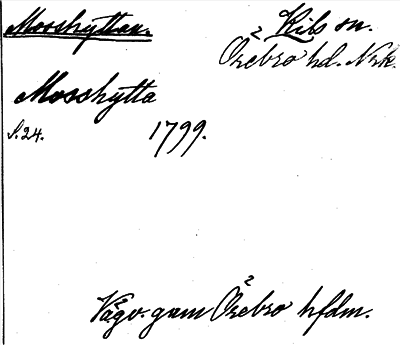 Mosshyttan.
Kils sn.
Örebro hd. Nrk.
Mosshytta
S. 24. 1799.
Vägv. gnm Örebro hfdm.